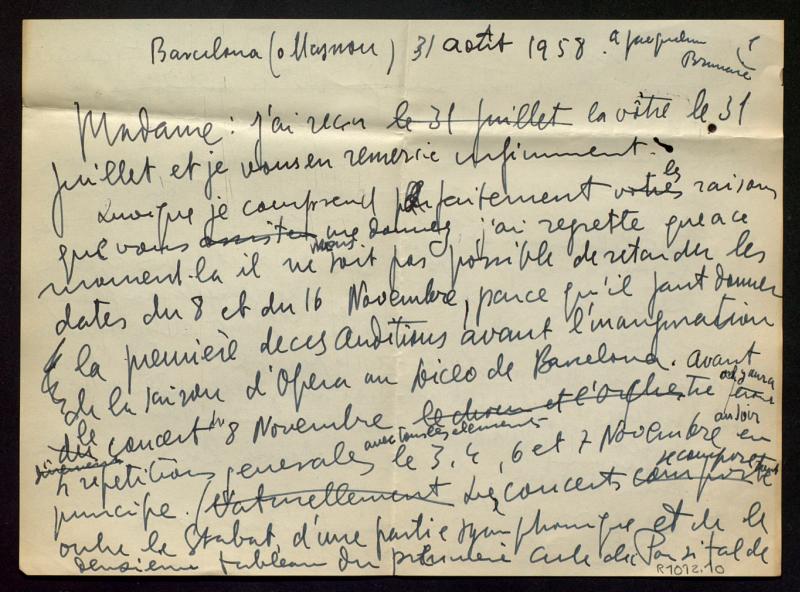 Barcelona (o Masnou) 31 août 1958. a Jacqueline
Brumaire
Madame: j'ai reçu le 31 juillet la vôtre le 31
juillet et je vous en remercie infiniment.
Quoique je comprend parfaitement votre les raisons
que vous assister me donnez j'ai regretté que a ce
moment-la il ne soit pas possible de retarder les
dates du 8 et du 16 Novembre, parce qu'il faut donner
la première de ces Auditions avant l'inauguration
de la saison d'Opera au Liceo de Barcelona. avant
le concert du 8 Novembre le choeur et l'Orchestre
avec tous les elements au soir
4 repetitions generales le 3, 4, 6 et 7 Novembre en
principe. (Naturellement Les concerts se composent
outre le Stabat, d'une partie symphonique et de le
deuxieme tableau du premiere acte du Parsifal de
R.1012.10